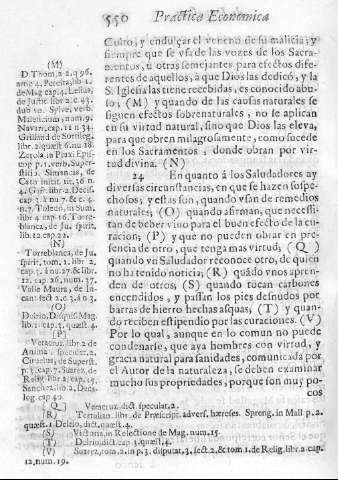 550 Practica Economica
Culto, y endulçar el veneno de su malicia; y
siempre que se vsa de las vozes de los Sacra-
mentos, ù otras semejantes para efectos dife-
rentes de aquellos, à que Dios las dedicó, y la
S. Iglesia las tiene recebidas, es conocido abu-
so; (M) y quando de las causas naturales se
siguen efectos sobrenaturales, no se aplican
en su virtud natural, sino que Dios las eleva,
para que obren milagrosamente, como sucede
en los Sacramentos, donde obran por vir-
tud divina. (N)
24 En quanto à los Saludadores ay
diversas circunstancias, en que se hazen sospe-
chosos; y estas son, quando vsan de remedios
naturales; (O) quando afirman, que necessi-
tan de bever vino para el buen efecto de la cu-
racion; (P) y que no pueden obrar en pre-
sencia de otro, que tenga mas virtud; (Q)
quando vn Saludador reconoce otro, de quien
no ha tenido noticia; (R) quãdo vnos apren-
den de otros; (S) quando tocan carbones
encendidos, y passan los pies desnudos por
barras de hierro hechas asquas; (T) y quan-
do reciben estipendio por las curaciones. (V)
Por lo qual, aunque en lo comun no puede
condenarse, que aya hombres con virtud, y
gracia natural para sanidades, comunicada por
el Autor de la naturaleza, se deben examinar
mucho sus propriedades, porque son muy po-
cos
(M)
D. Thom. 2. 2. q. 96.
arme 4. Pereira, lib. 1.
de Mag. cap. 4. Lesius,
de Justit. lib. 2. c. 43.
dub. 10. Sylve, verb.
Maleficium, num. 9.
Navarr. cap. 11. n. 34.
Griland. de Sortileg.
lib. 2. quæst. 6. nu. 18.
Zerola, in Praxi Epis-
cop. p. 1. verb. Supers-
titio. Simancas, de
Cato. instit. tit. 36. n.
4. Gist. lib. 2. Decis.
cap. 3. à nu. 7. & c. 4.
n. 7. Toled. in Sum.
lib. 4. cap. 16. Torre-
blanca, de Ju. spirit.
lib. 12. cap. 22.
(N)
Torreblanca, de Ju.
spirit. tom. 12. lib. 2.
cap. 3. à nu. 27. & lib.
12. cap. 26. num. 37.
Valle Maura, de In-
cant. sect. 2. c. 3. à n. 3.
(O)
Delrio, Disquis. Mag.
lib. 1. cap. 3. quæst. 4.
(P)
Veracruz. lib. 2. de
Anima, speculat. 2.
Ciruelas, de Superst.
p. 3. cap. 7. Suarez, de
Relig. lib. 2. cap. 15.
Sanchez, lib. 2. Deca-
log. cap. 40.
(Q) Veracruz. dict. speculat. 2.
(R) Tertulian. lib. de Præscript. advers. hæreses. Spreng. in Mall. p. 2.
quæst. 1. Delrio, dict. quæst. 4.
(S) Victoria, in Relectione de Mag. num. 15.
(T) Delrio, dict. cap. 3. quæst. 4.
(V) Suarez, tom. 2. in p. 3. disputat. 3. sect. 2. & tom. 1. de Relig. lib. 2. cap.
12. num. 19.